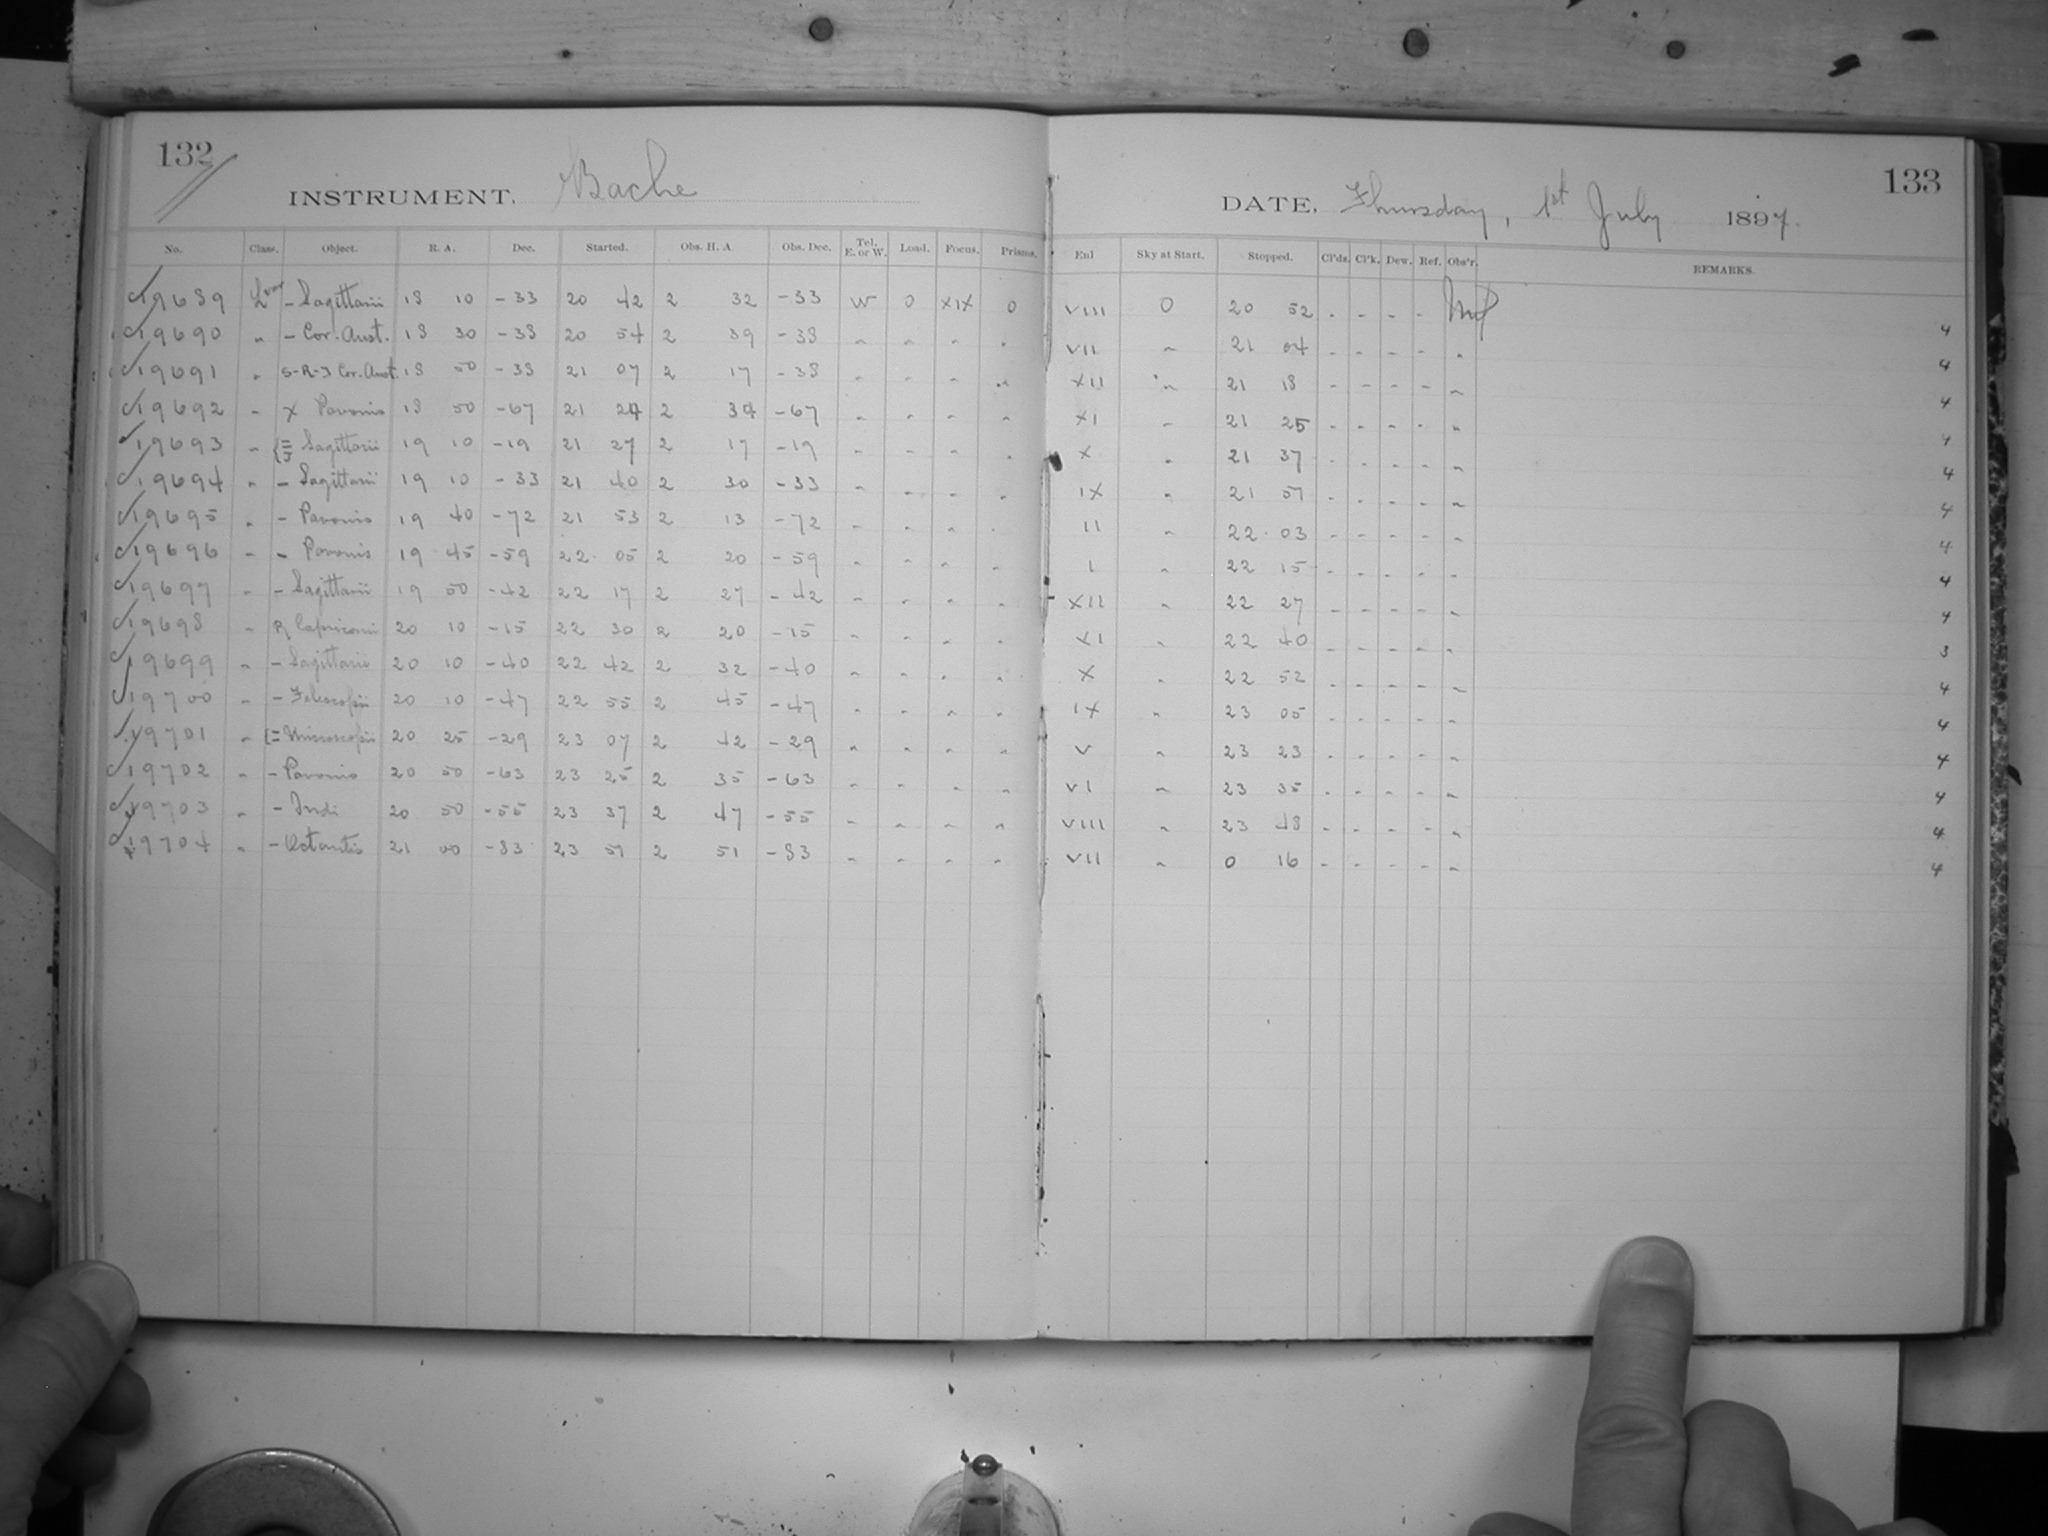 132
INSTRUMENT. Bache
No. Class. Object. R. A. Dec. Started. Obs. H. A. Obs. Dec. Tel. E. or W. Load. Focus. Prisms.
19689 L var - Sagittarii 18 10 -33 20 42 2 32 -33 W 0 XIX 0
19690 " - Cor. Aust. 18 30 -38 20 54 2 39 -38 " " " "
19691 " S-R-J Cor. Aust. 18 50 -38 21 07 2 17 -38 " " " "
19692 " X Pavonis 18 50 -67 21 24 2 34 -67 " " " "
19693 " Sagittarii 19 10 -19 21 27 2 17 -19 " " " "
19694 " - Sagittarii 19 10 -33 21 40 2 30 -33 " " " "
19695 " - Pavonis 19 40 -72 21 53 2 13 -72 " " " "
19696 " - Pavonis 19 45 -59 22 05 2 20 -59 " " " "
19697 " - Sagittarii 19 50 -42 22 17 2 27 -42 " " " "
19698 " R Capricorni 20 10 -15 22 30 2 20 -15 " " " "
19699 " - Sagittarii 20 10 -40 22 42 2 32 -40 " " " "
19700 " - Telescopii 20 10 -47 22 55 2 45 -47 " " " "
19701 " Microscopii 20 25 -29 23 07 2 42 -29 " " " "
19702 " - Pavonis 20 50 -63 23 25 2 35 -63 " " " "
19703 " - Indi 20 50 -55 23 37 2 47 -55 " " " "
19704 " - Octantis 21 00 -83 23 51 2 51 -83 " " " "
133
DATE. Thursday, 1st July 1897.
Enl Sky at Start. Stopped. Cl'ds. Cl'k. Dew. Ref. Obs'r. REMARKS.
VIII 0 20 52 - - - - 4
VII " 21 04 - - - - " 4
XII " 21 18 - - - - " 4
XI " 21 25 - - - - " 4
X " 21 37 - - - - " 4
IX " 21 51 - - - - " 4
II " 22 03 - - - - " 4
I " 22 15 - - - - " 4
XII " 22 27 - - - - " 4
XI " 22 40 - - - - " 3
X " 22 52 - - - - " 4
IX " 23 05 - - - - " 4
V " 23 23 - - - - " 4
VI " 23 35 - - - - " 4
VIII " 23 48 - - - - " 4
VII " 0 16 - - - - " 4